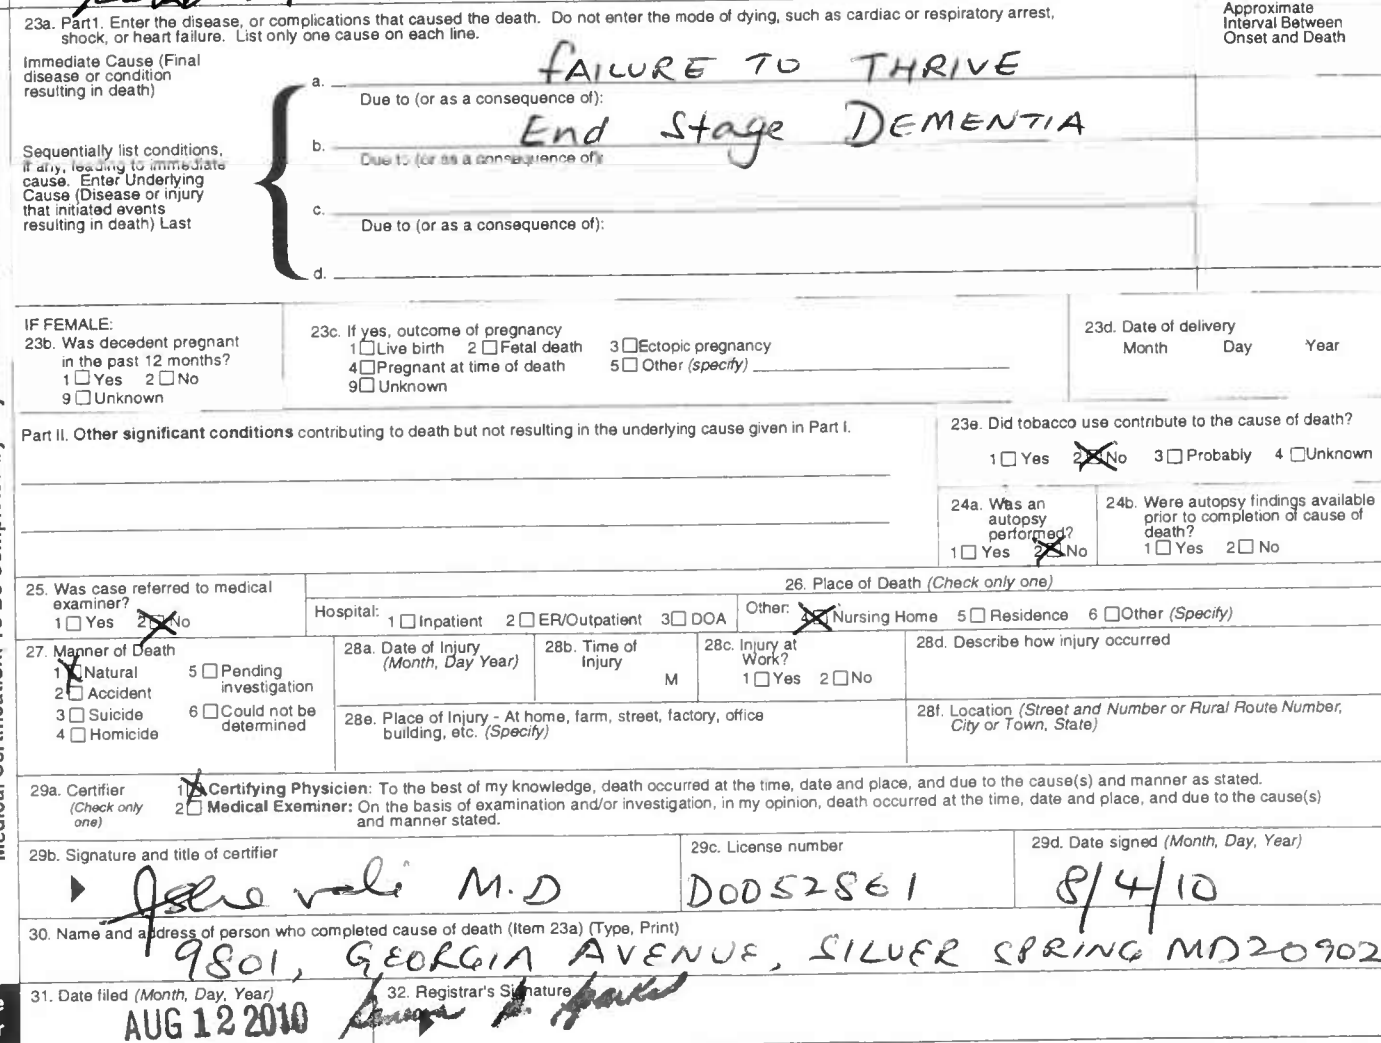 23a. Part1. Enter the disease, or complications that caused the death. Do not enter the mode of dying, such as cardiac or respiratory arrest,
shock, or heart failure. List only one cause on each line.
Approximate
Interval Between
Onset and Death
Immediate Cause (Final
disease or condition
resulting in death)
a. FAILURE TO THRIVE
Due to (or as a consequence of):
b. End Stage DEMENTIA
Due to (or as a consequence of):
Sequentially list conditions,
if any, leading to immediate
cause. Enter Underlying
Cause (Disease or injury
that initiated events
resulting in death) Last
c.
Due to (or as a consequence of):
d.
IF FEMALE:
23b. Was decedent pregnant
in the past 12 months?
1 ☐ Yes 2 ☐ No
9 ☐ Unknown
23c. If yes, outcome of pregnancy
1 ☐ Live birth 2 ☐ Fetal death 3 ☐ Ectopic pregnancy
4 ☐ Pregnant at time of death 5 ☐ Other (specify)
9 ☐ Unknown
23d. Date of delivery
Month Day Year
Part II. Other significant conditions contributing to death but not resulting in the underlying cause given in Part I.
23e. Did tobacco use contribute to the cause of death?
1 ☐ Yes 2 ☒ No 3 ☐ Probably 4 ☐ Unknown
24a. Was an
autopsy
performed?
1 ☐ Yes 2 ☒ No
24b. Were autopsy findings available
prior to completion of cause of
death?
1 ☐ Yes 2 ☐ No
25. Was case referred to medical
examiner?
1 ☐ Yes 2 ☒ No
26. Place of Death (Check only one)
Hospital: 1 ☐ Inpatient 2 ☐ ER/Outpatient 3 ☐ DOA Other: 4 ☒ Nursing Home 5 ☐ Residence 6 ☐ Other (Specify)
27. Manner of Death
1 ☒ Natural 5 ☐ Pending
investigation
2 ☐ Accident
3 ☐ Suicide 6 ☐ Could not be
determined
4 ☐ Homicide
28a. Date of Injury
(Month, Day Year)
28b. Time of
Injury
M
28c. Injury at
Work?
1 ☐ Yes 2 ☐ No
28d. Describe how injury occurred
28e. Place of Injury - At home, farm, street, factory, office
building, etc. (Specify)
28f. Location (Street and Number or Rural Route Number,
City or Town, State)
29a. Certifier
(Check only
one)
1 ☒ Certifying Physician: To the best of my knowledge, death occurred at the time, date and place, and due to the cause(s) and manner as stated.
2 ☐ Medical Examiner: On the basis of examination and/or investigation, in my opinion, death occurred at the time, date and place, and due to the cause(s)
and manner stated.
29b. Signature and title of certifier
M.D
29c. License number
D0052861
29d. Date signed (Month, Day, Year)
8/4/10
30. Name and address of person who completed cause of death (Item 23a) (Type, Print)
9801, GEORGIA AVENUE, SILVER SPRING MD20902
31. Date filed (Month, Day, Year)
AUG 12 2010
32. Registrar's Signature